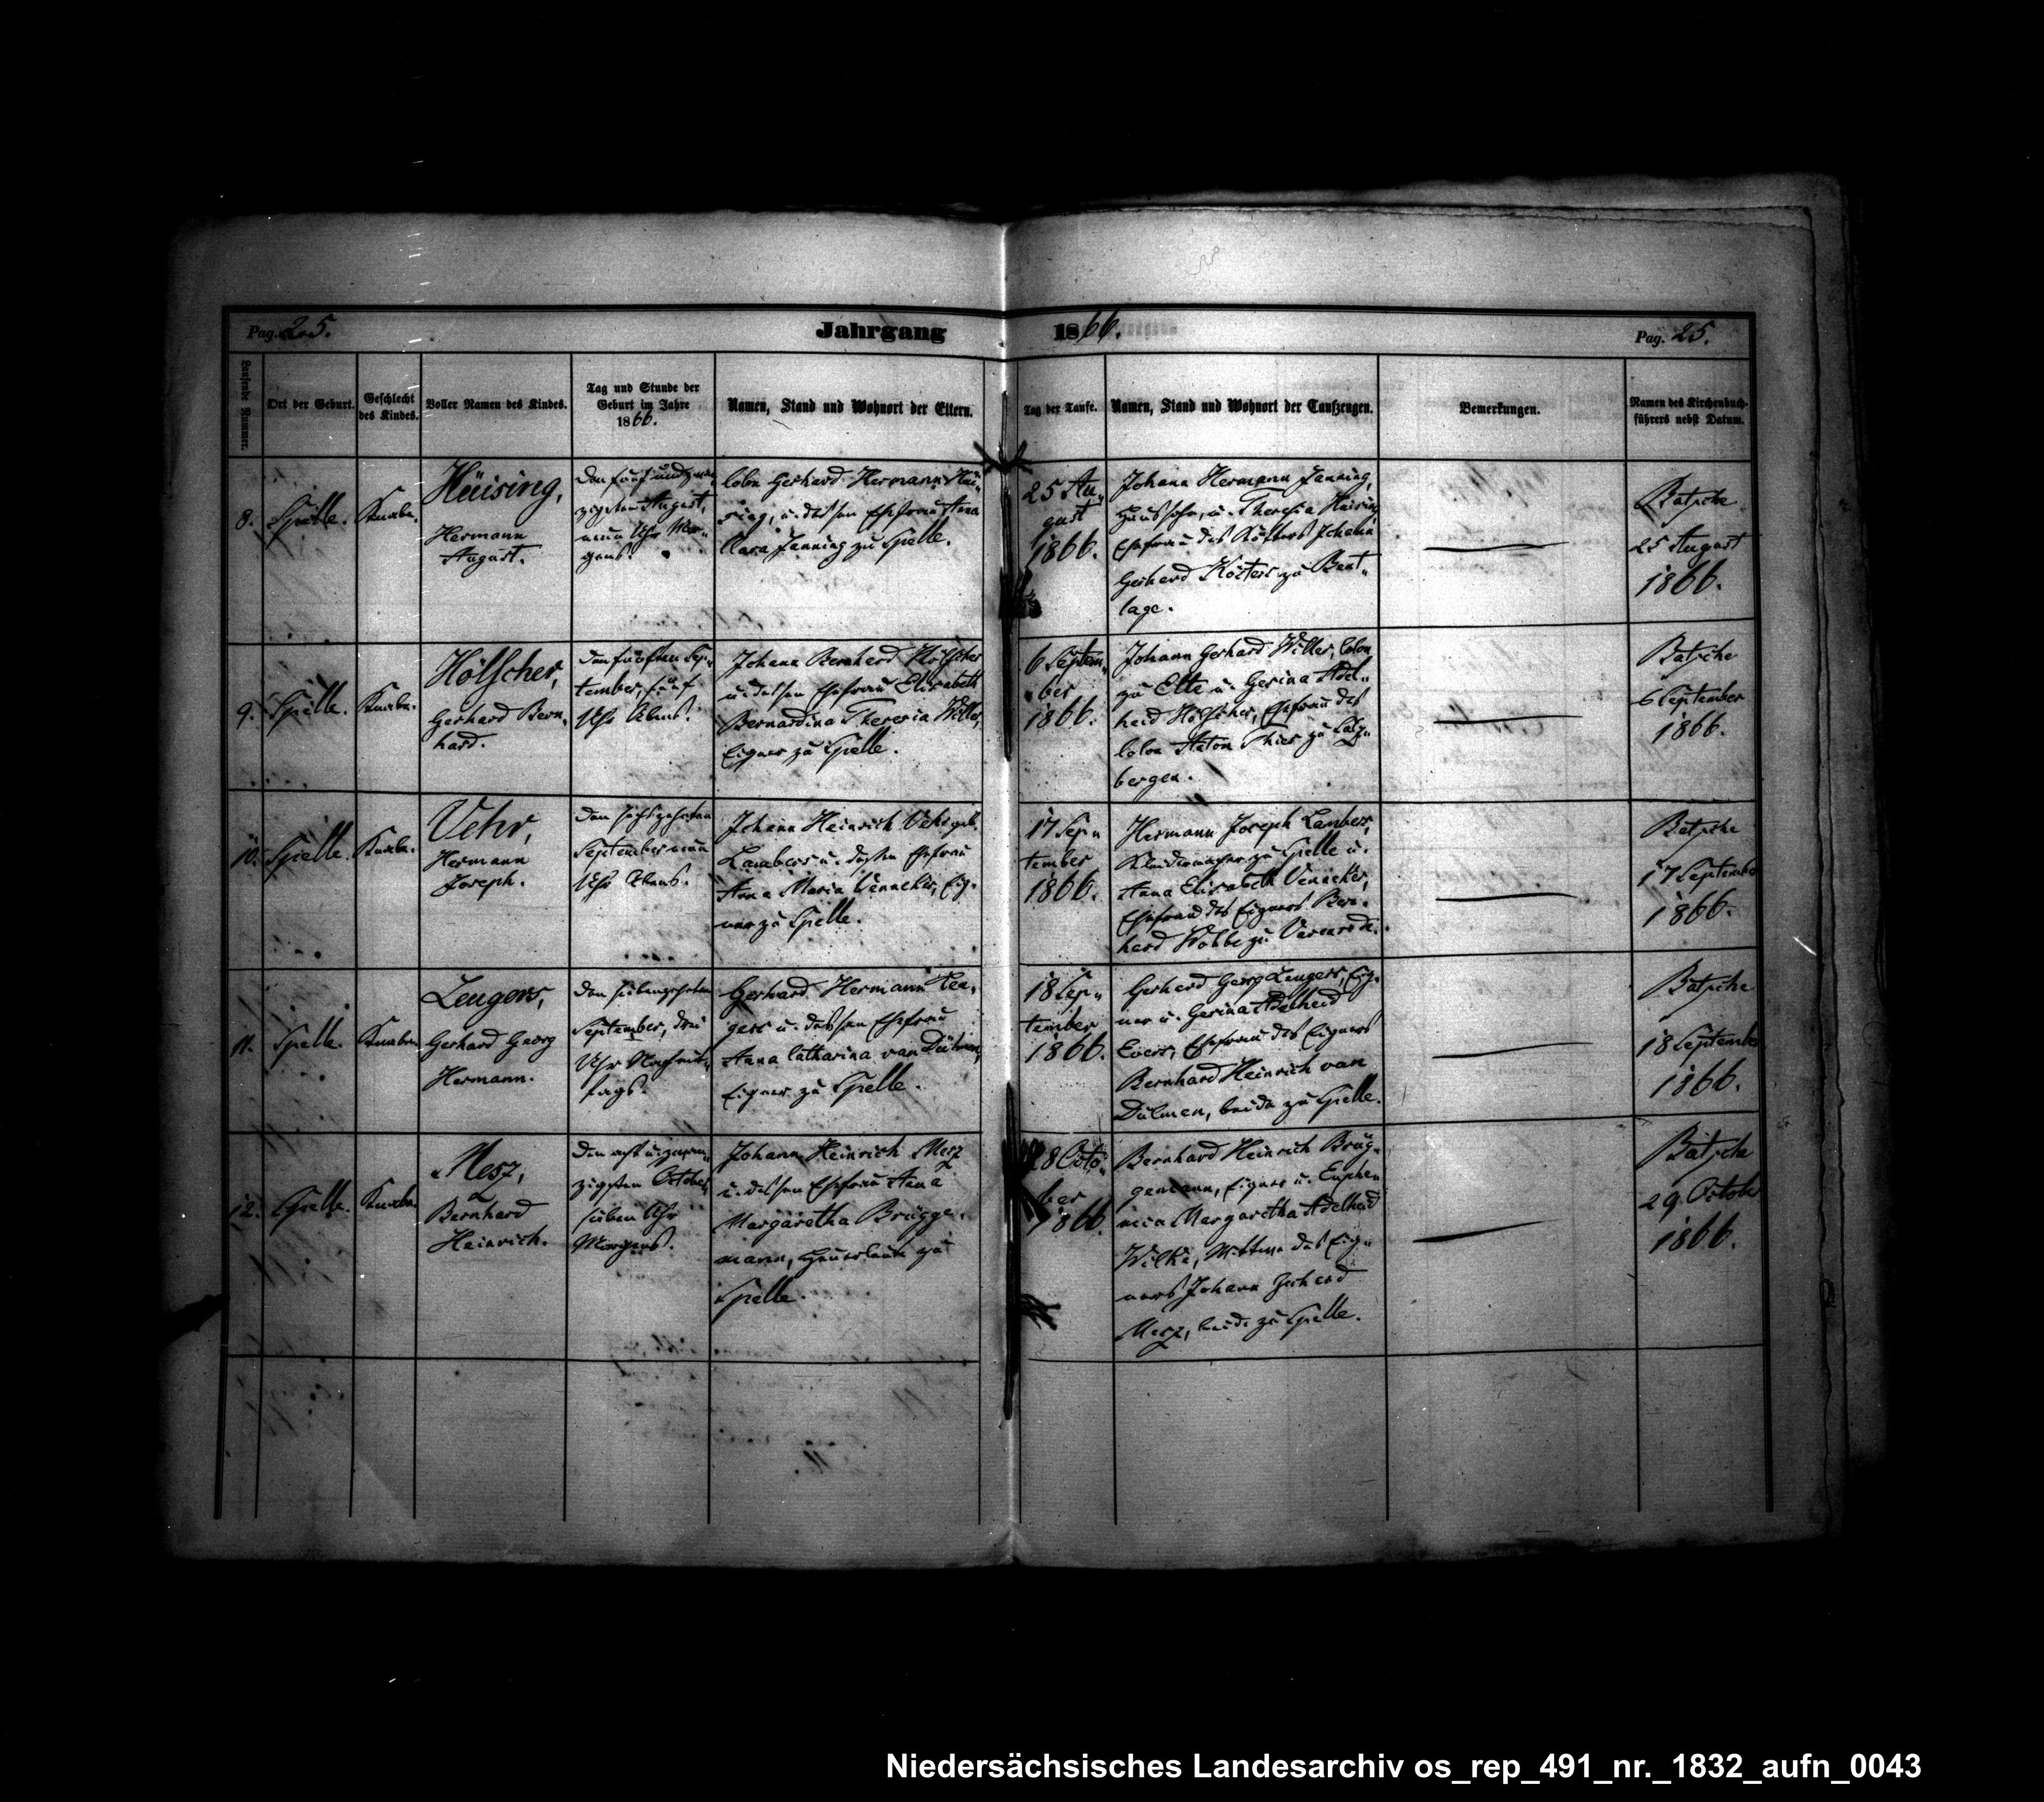 Pag. 25.
Jahrgang 1866.
Pag. 25.
Laufende Nummer.
Ort der Geburt.
Geschlecht
des Kindes.
Voller Namen des Kindes.
Tag und Stunde der
Geburt im Jahre
1866.
Namen, Stand und Wohnort der Eltern.
Tag der Taufe.
Namen, Stand und Wohnort der Taufzeugen.
Bemerkungen.
Namen des Kirchenbuch-
führers nebst Datum.
8.
Spelle.
Knabe.
Hüising,
Hermann
August.
Den fünf und zwan
zigsten August,
neun Uhr Mor„
gens.
Colon Gerhard Hermann Hüi„
sing, u. dessen Ehefrau Anna
Clara Janning zu Spelle.
25 Au„
gust
1866.
Johann Hermann Janning,
Haussohn, u. Theresia Hüising
Ehefrau des Kötters Johann
Gerhard Kösters zu Bent„
lage.
Batsche
25 August
1866.
9.
Spelle.
Knabe.
Hölscher,
Gerhard Bern„
hard.
Den fünften Sep„
tember, fünf
Uhr Abends.
Johann Bernhard Hölscher
u. dessen Ehefrau Elisabeth
Bernardina Theresia Willer,
Eigner zu Spelle.
6 Septem„
„ber
1866.
Johann Gerhard Willer, Colon
zu Elte u. Gesina Adel„
heid Hölscher, Ehefrau des
Colon Anton Thier zu Salz„
bergen.
Batsche
6 September
1866.
10.
Spelle.
Knabe.
Vehr,
Hermann
Joseph.
Den sechszehnten
September neun
Uhr Abends.
Johann Heinrich Vehr geb.
Lambers u. dessen Ehefrau
Anna Maria Venneker, Eig„
ner zu Spelle.
17 Sep„
tember
1866.
Hermann Joseph Lambers,
Kleidermacher zu Spelle u.
Anna Elisabeth Venneker,
Ehefrau des Eigners Bern„
hard Wobbe zu Varenrode.
Batsche
17 September
1866.
11.
Spelle.
Knabe.
Lengers,
Gerhard Georg
Hermann.
Den siebenzehnten
September, drei
Uhr Nachmit„
tags.
Gerhard Hermann Len„
gers u. dessen Ehefrau
Anna Catharina van Dülmen,
Eigner zu Spelle.
18 Sep„
tember
1866.
Gerhard Georg Lengers, Eig„
ner u. Gesina Adelheid
Evers, Ehefrau des Eigners
Bernhard Heinrich van
Dülmen, beide zu Spelle.
Batsche
18 September
1866.
12.
Spelle.
Knabe.
Mesz,
Bernhard
Heinrich.
Den acht u. zwan„
zigsten October,
sieben Uhr
Morgens.
Johann Heinrich Mesz
u. dessen Ehefrau Anna
Margaretha Brügge„
mann, Heuerleute zu
Spelle.
28 Octo„
ber
1866
Bernhard Heinrich Brüg„
gemann, Eigner u. Euphe„
mia Margaretha Adelheid
Wilke, Wittwe des Eig„
ners Johann Gerhard
Mesz, beide zu Spelle.
Batsche
29 October
1866.
Niedersächsisches Landesarchiv os_rep_491_nr._1832_aufn_0043